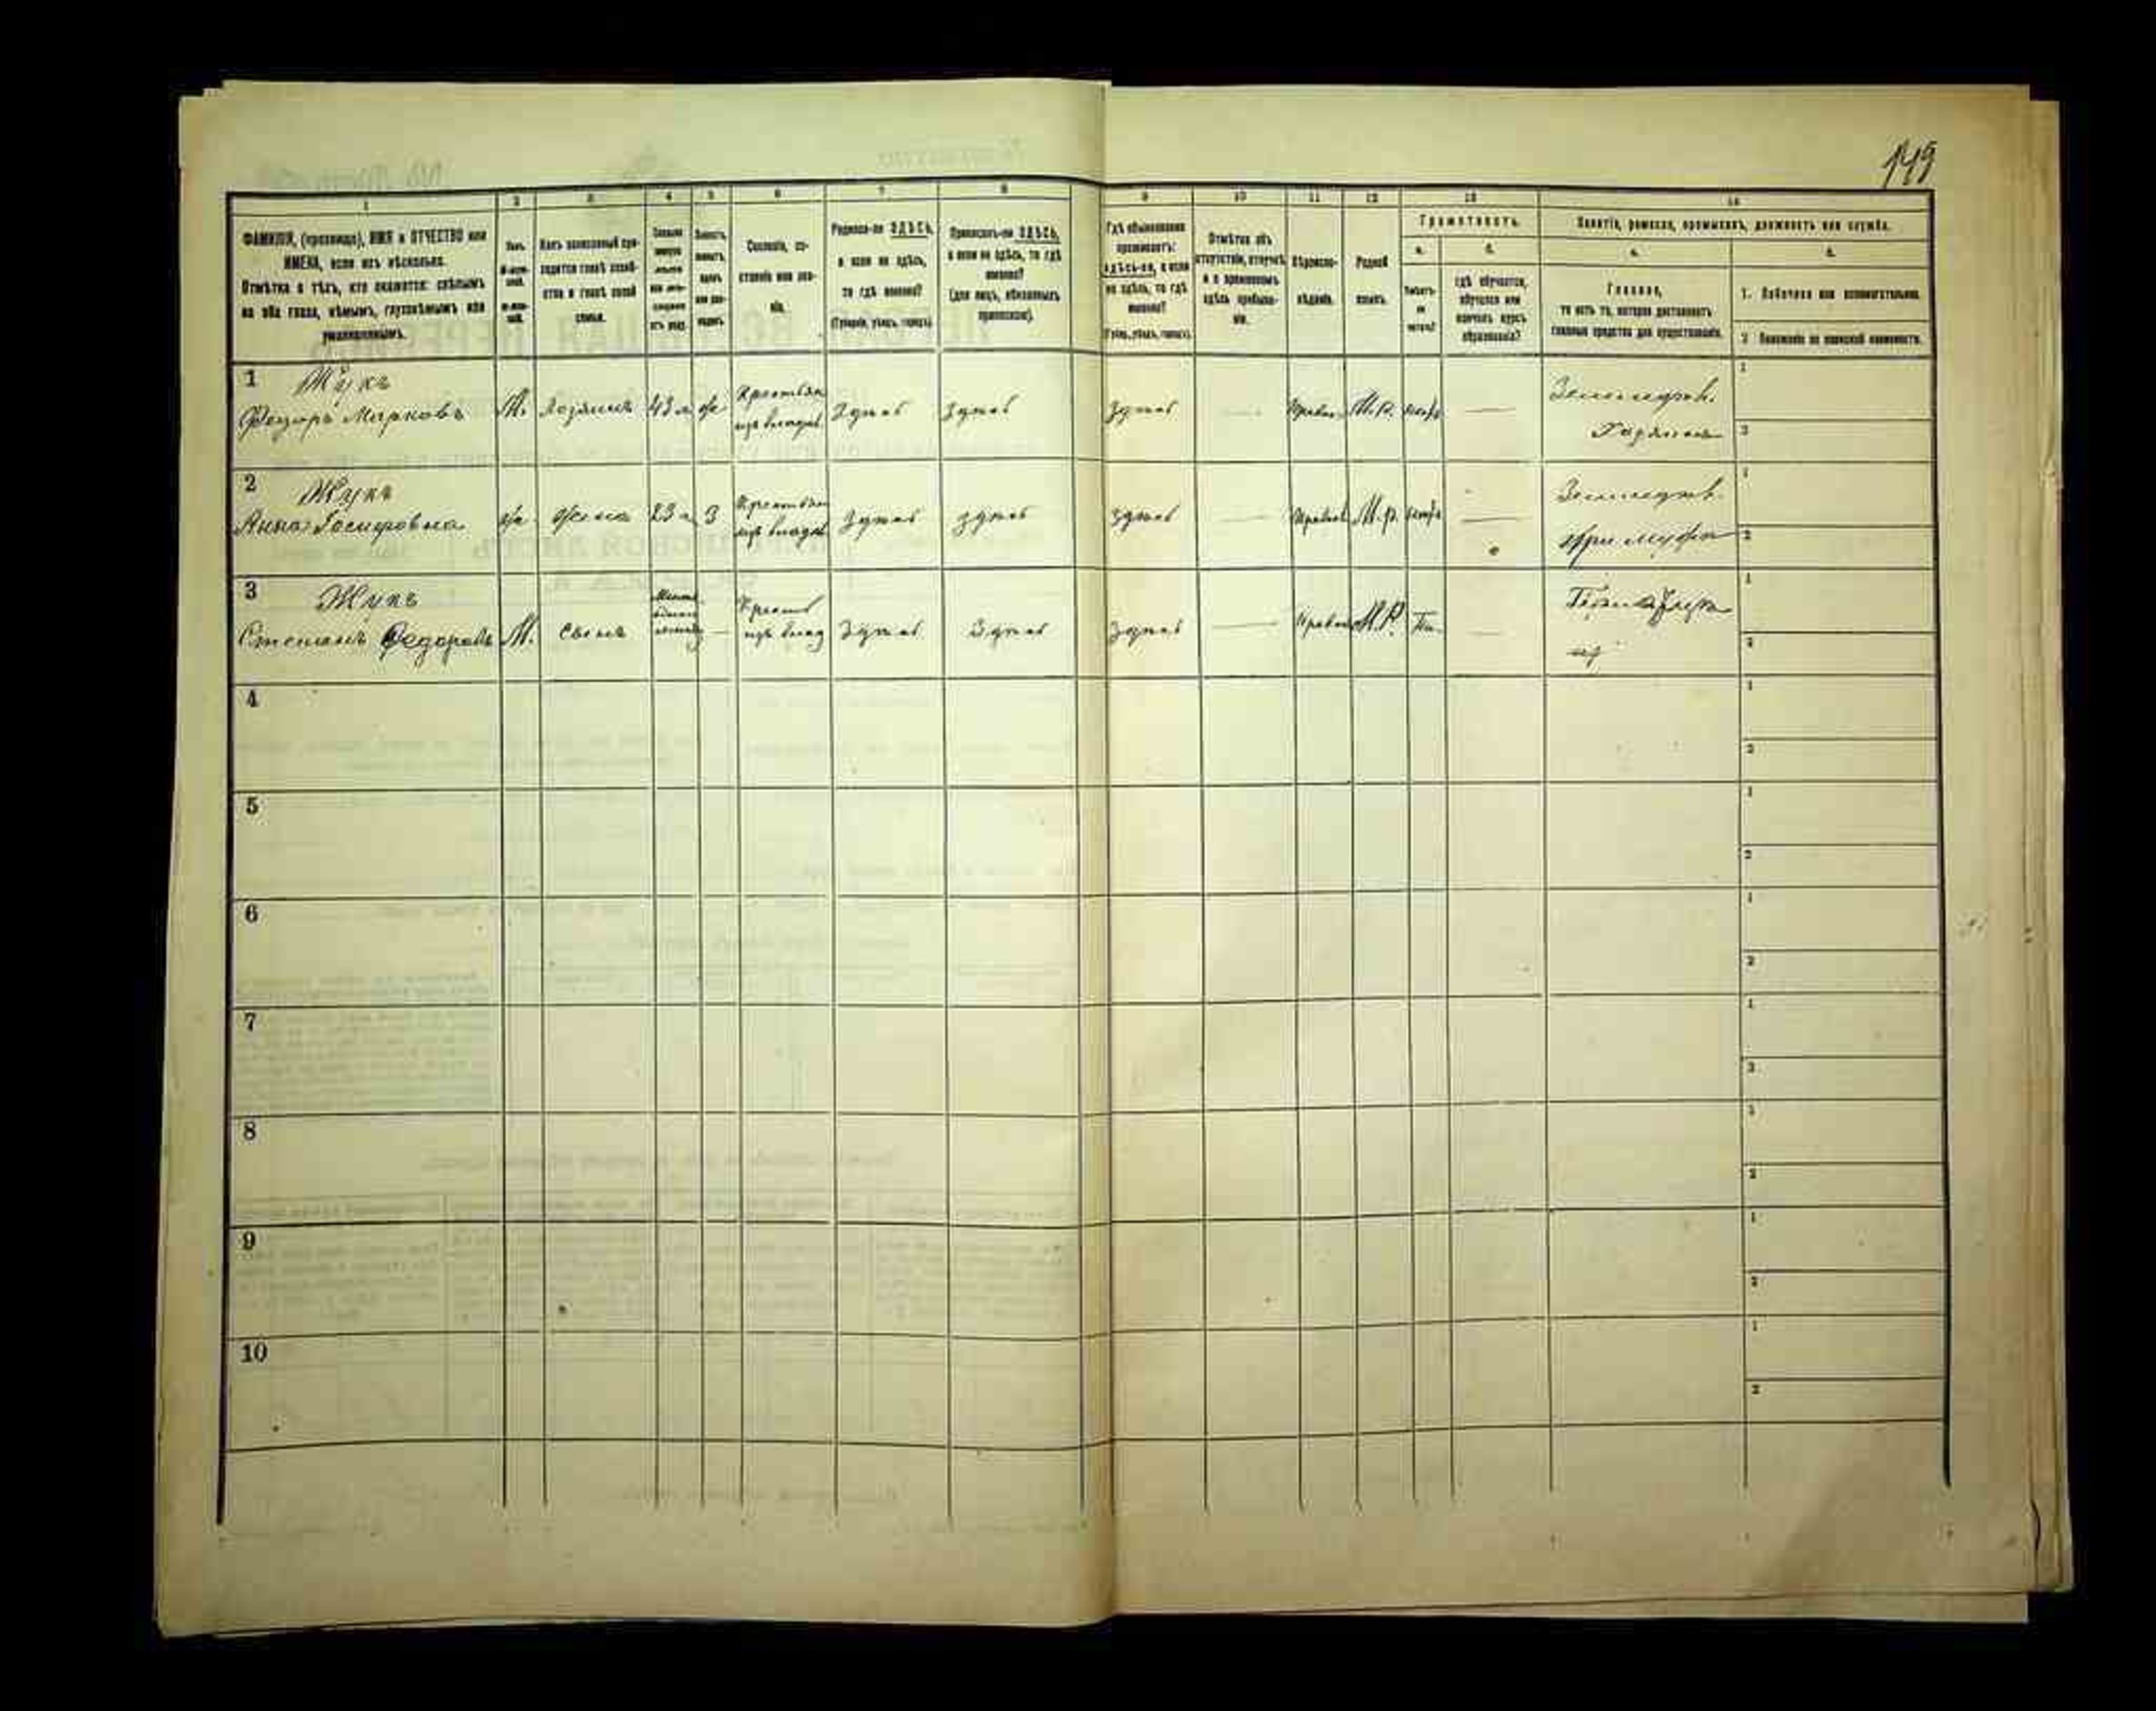 149
1 2 3 4 5 6 7 8 9 10 11 12 13 14
ФАМИЛІЯ, (прозвище), ИМЯ и ОТЧЕСТВО или
ИМЕНА, если ихъ нѣсколько.
Отмѣтка о тѣхъ, кто окажется: слѣпымъ
на оба глаза, нѣмымъ, глухонѣмымъ или
умалишеннымъ.
Полъ.
Какъ записанный при-
ходится главѣ хозяй-
ства и главѣ своей
семьи.
Сословіе, со-
стояніе или зва-
ніе.
Родился-ли ЗДѢСЬ,
а если не здѣсь,
то гдѣ именно?
(Губернія, уѣздъ, городъ).
Приписанъ-ли ЗДѢСЬ,
а если не здѣсь, то гдѣ
именно?
(для лицъ, обязанныхъ
припискою).
Гдѣ обыкновенно
проживаетъ:
здѣсь-ли, а если
не здѣсь, то гдѣ
именно?
(Губер., уѣздъ, городъ).
Отмѣтка объ
отсутствіи, отлучкѣ
и о временномъ
здѣсь пребыва-
ніи.
Вѣроиспо-
вѣданіе.
Родной
языкъ.
Грамотность.
а. б.
Умѣетъ-
ли
читать?
гдѣ обучается,
обучался или
кончилъ курсъ
образованія?
Занятіе, ремесло, промыселъ, должность или служба.
а. б.
Главное,
то есть то, которое доставляетъ
главныя средства для существованія.
1. Побочное или вспомогательное.
2. Положеніе по воинской повинности.
1 Жукъ
Федоръ Марковъ М. Хозяинъ 43 л ж Крестьян
изъ владѣл. Здѣсь здѣсь здѣсь — Правос. М.р. негр — Земледѣл.
Хозяинъ
2 Жукъ
Анна Госифовна ж. жена 23 л З Крестьян
изъ владѣл Здѣсь здѣсь здѣсь — Правос М.р. негр — Земледѣл.
при мужѣ
3 Жукъ
Степанъ Федоровъ М. сынъ — Крест
изъ влад Здѣсь Здѣсь Здѣсь — Правос М.Р. —
4
5
6
7
8
9
10